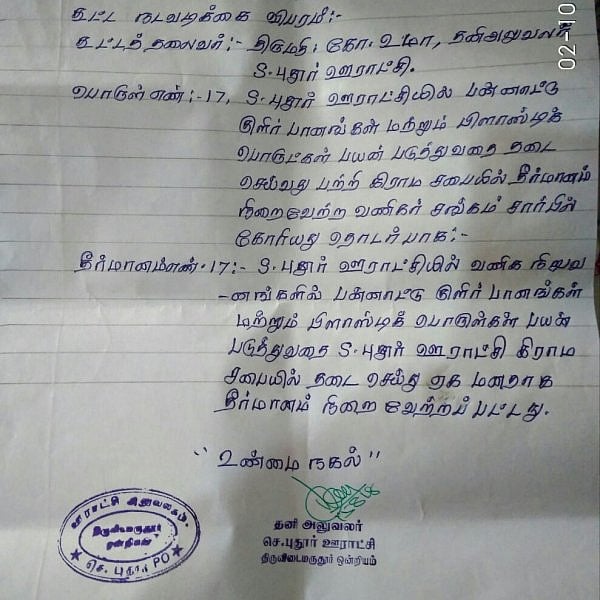 கூட்ட நடவடிக்கை விபரம்:-
கூட்டத் தலைவர்:- திருமதி. கோ. உமா, தனிஅலுவலர்
S. புதூர் ஊராட்சி.
பொருள் எண்:-17, S. புதூர் ஊராட்சியில் பன்னாட்டு
குளிர் பானங்கள் மற்றும் பிளாஸ்டிக்
பொருட்கள் பயன் படுத்துவதை தடை
செய்வது பற்றி கிராம சபையில் தீர்மானம்
நிறைவேற்ற வணிகர் சங்கம் சார்பில்
கோரியது தொடர்பாக:-
தீர்மானம்எண்.17:- S. புதூர் ஊராட்சியில் வணிக நிறுவ
-னங்களில் பன்னாட்டு குளிர் பானங்கள்
மற்றும் பிளாஸ்டிக் பொருள்கள் பயன்
படுத்துவதை S. புதூர் ஊராட்சி கிராம
சபையில் தடை செய்து ஏக மனதாக
தீர்மானம் நிறைவேற்றப் பட்டது.
"உண்மை நகல்"
தனி அலுவலர்
செ.புதூர் ஊராட்சி
திருவிடைமருதூர் ஒன்றியம்
ஊராட்சி அலுவலகம்
திருவிடைமருதூர்
ஒன்றியம்
செ. புதூர் PO
02-10